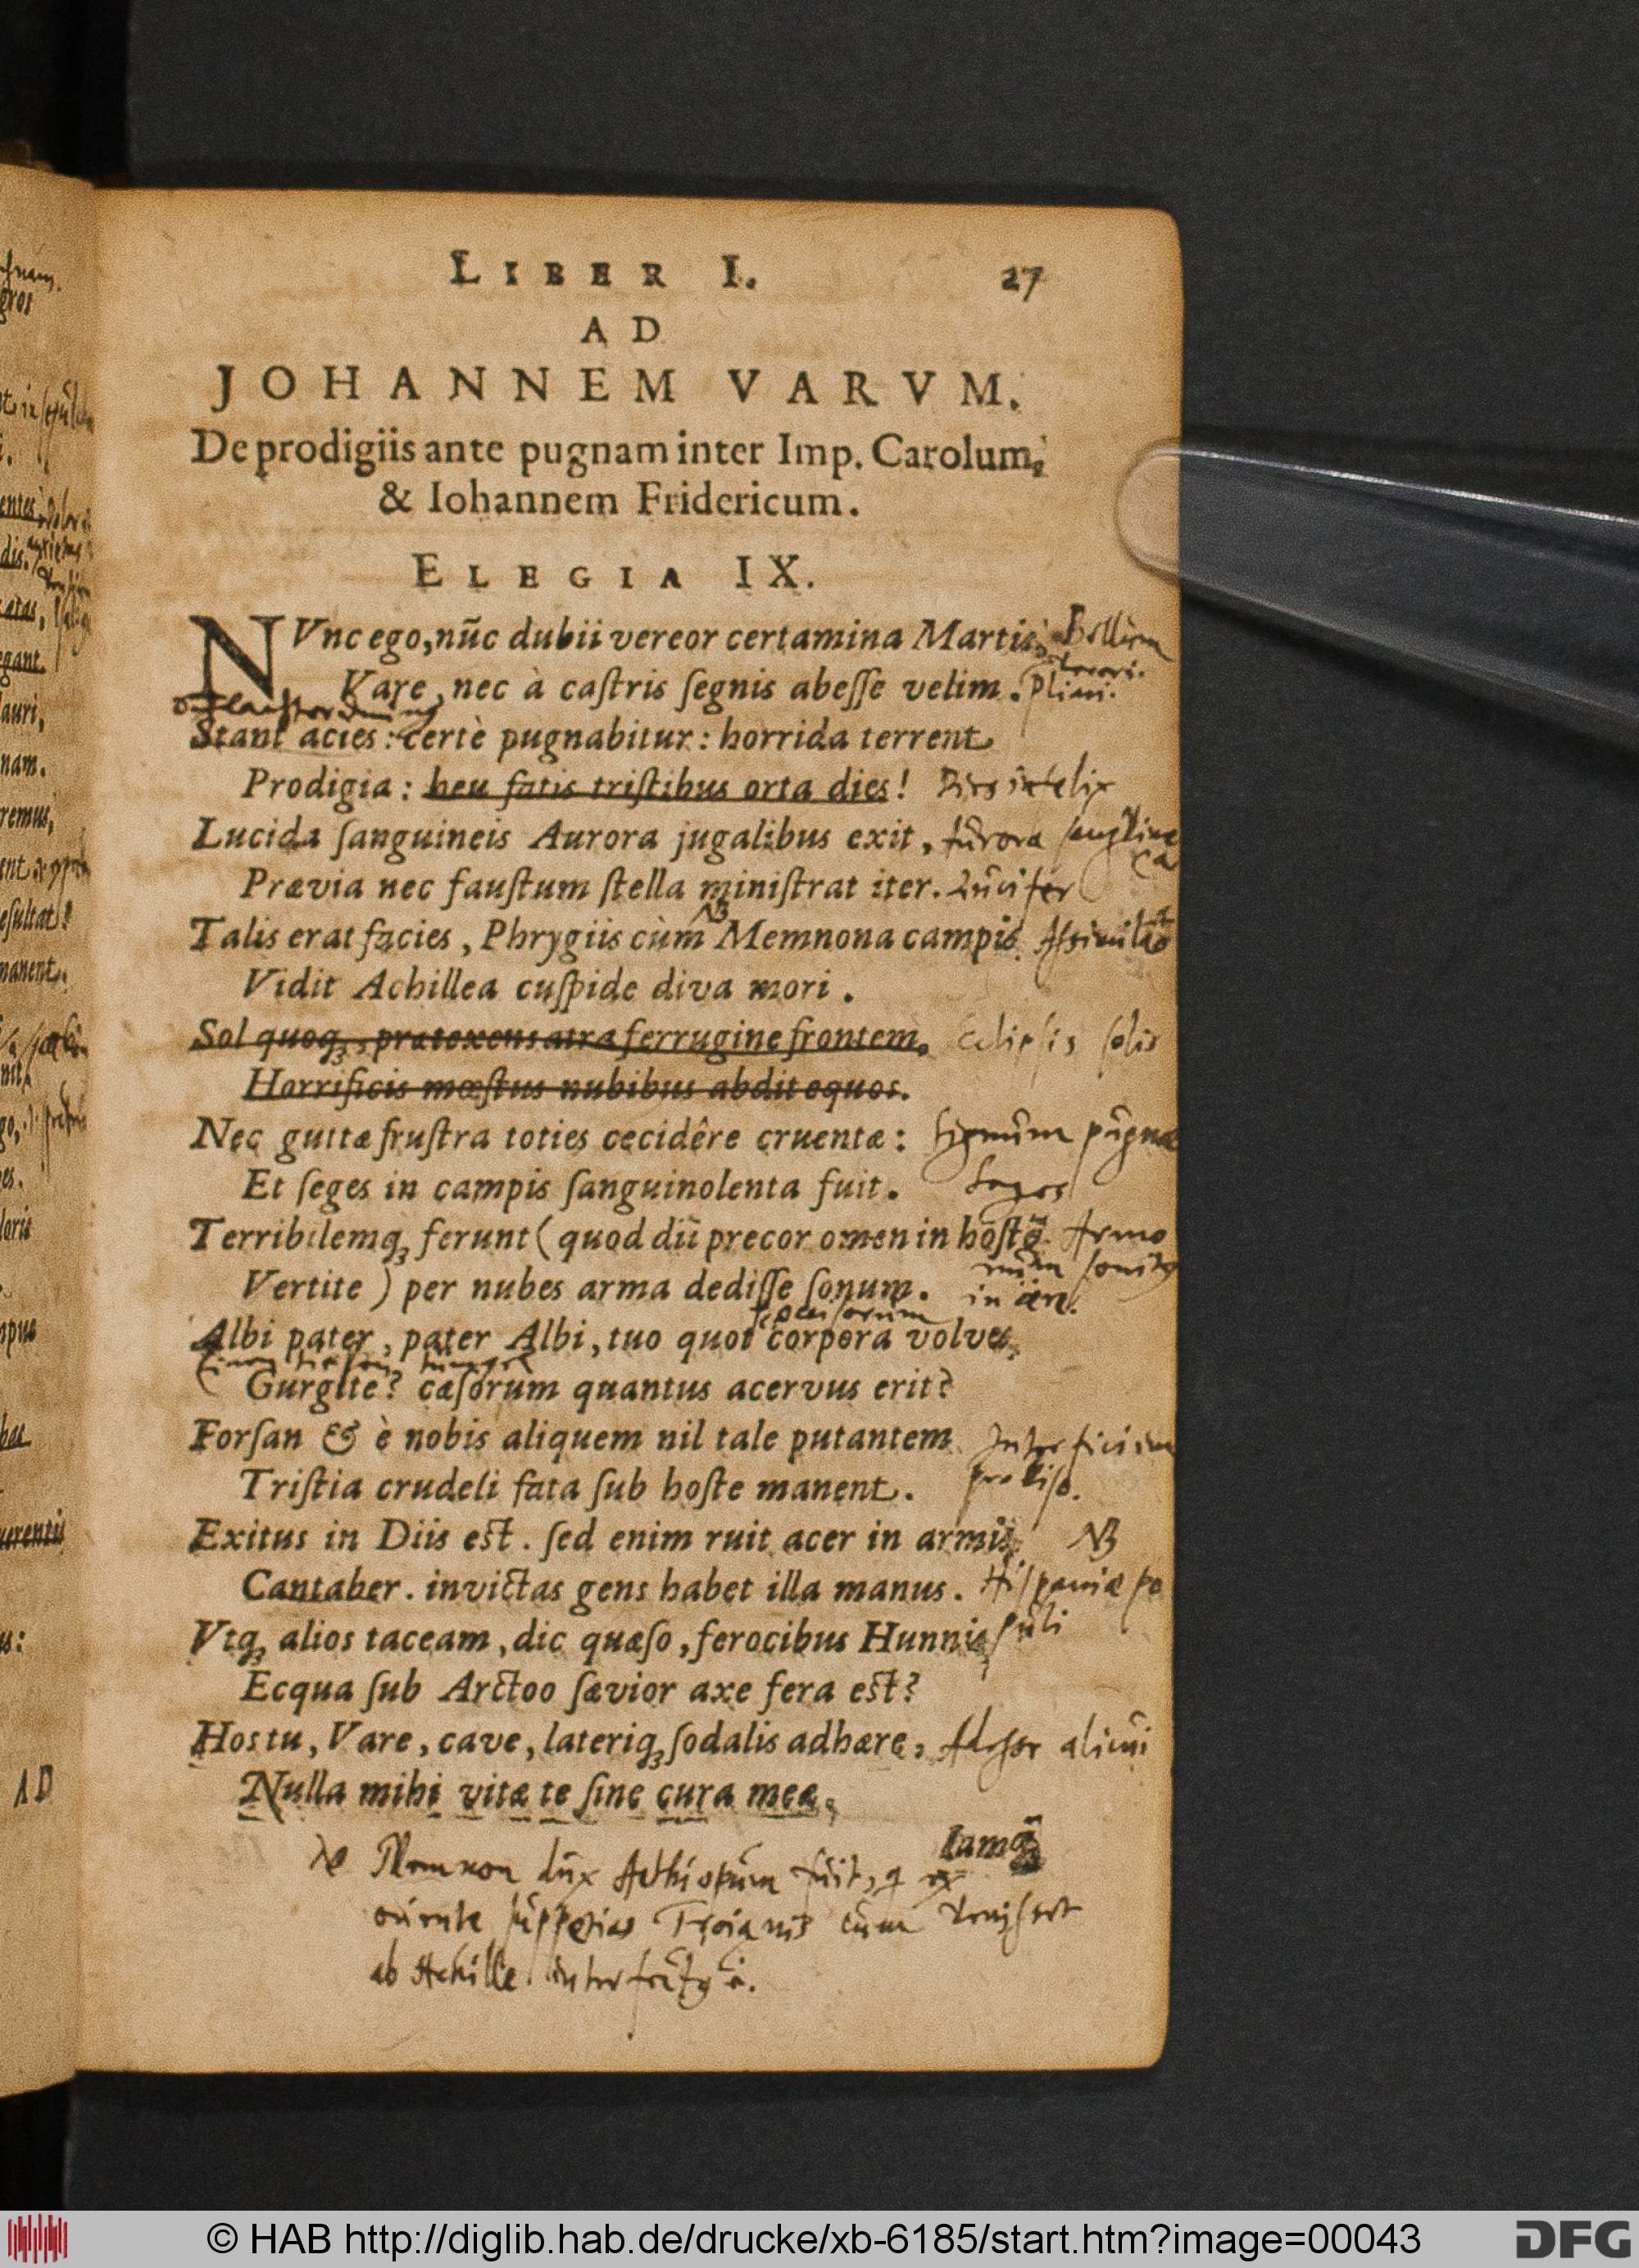 LIBER I. 27
AD
JOHANNEM VARVM.
De prodigiis ante pugnam inter Imp. Carolum,
& Iohannem Fridericum.
ELEGIA IX.
NVnc ego, nũc dubii vereor certamina Martis, Bellum
Vare, nec à castris segnis abesse velim.
Stant acies: certè pugnabitur: horrida terrent
Prodigia: heu fatis tristibus orta dies! Dies infelix
Lucida sanguineis Aurora jugalibus exit, Aurora
Prævia nec faustum stella ministrat iter. Lucifer
NB
Talis erat facies, Phrygiis cùm Memnona campis
Vidit Achillea cuspide diva mori.
Sol quoq;, prætexens atra ferrugine frontem, Eclipsis solis
Horrificis mæstus nubibus abdit equos.
Nec guttæ frustra toties cecidêre cruentæ: signum pugnæ
Et seges in campis sanguinolenta fuit. Seges
Terribilemq; ferunt (quod dii precor omen in hostẽ Armo
rum sonitus
Vertite) per nubes arma dedisse sonum. in aere.
Albi pater, pater Albi, tuo quot corpora volves,
Gurgite? cæsorum quantus acervus erit?
Forsan & è nobis aliquem nil tale putantem
Tristia crudeli fata sub hoste manent.
Exitus in Diis est. sed enim ruit acer in armis, NB
Cantaber. invictas gens habet illa manus. Hispaniæ po
Vtq; alios taceam, dic quæso, ferocibus Hunnis, puli
Ecqua sub Arctoo sævior axe fera est?
Hos tu, Vare, cave, lateriq; sodalis adhære, alicui
Nulla mihi vitæ te sine cura meæ,
Iamq;
Memnon dux Aethiopum fuit, q ex
oriente suppetias Troianis cum
ab Achille interfectus ẽ.
AD
© HAB http://diglib.hab.de/drucke/xb-6185/start.htm?image=00043 DFG